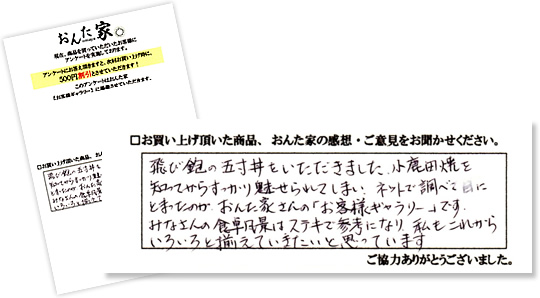 おんた家
現在、商品を買っていただいたお客様に
アンケートを実施しております。
アンケートにお答え頂きますと、次回お買い上げ時に、
500円割引とさせていただきます!
このアンケートはおんた家
【お客様ギャラリー】に掲載させていただきます。
□お買い上げ頂いた商品、お
飛び鉋の五寸丼を
知ってからすっかり魅
とまったのが おんた家
みなさんの食卓風景
いろいろと揃え
□お買い上げ頂いた商品、おんた家の感想・ご意見をお聞かせください。
飛び鉋の五寸丼をいただきました。小鹿田焼を
知ってからすっかり魅せられてしまい、ネットで調べて目に
とまったのが おんた家さんの「お客様ギャラリー」です。
みなさんの食卓風景はステキで参考になり、私もこれから
いろいろと揃えていきたいと思っています
ご協力ありがとうございました。